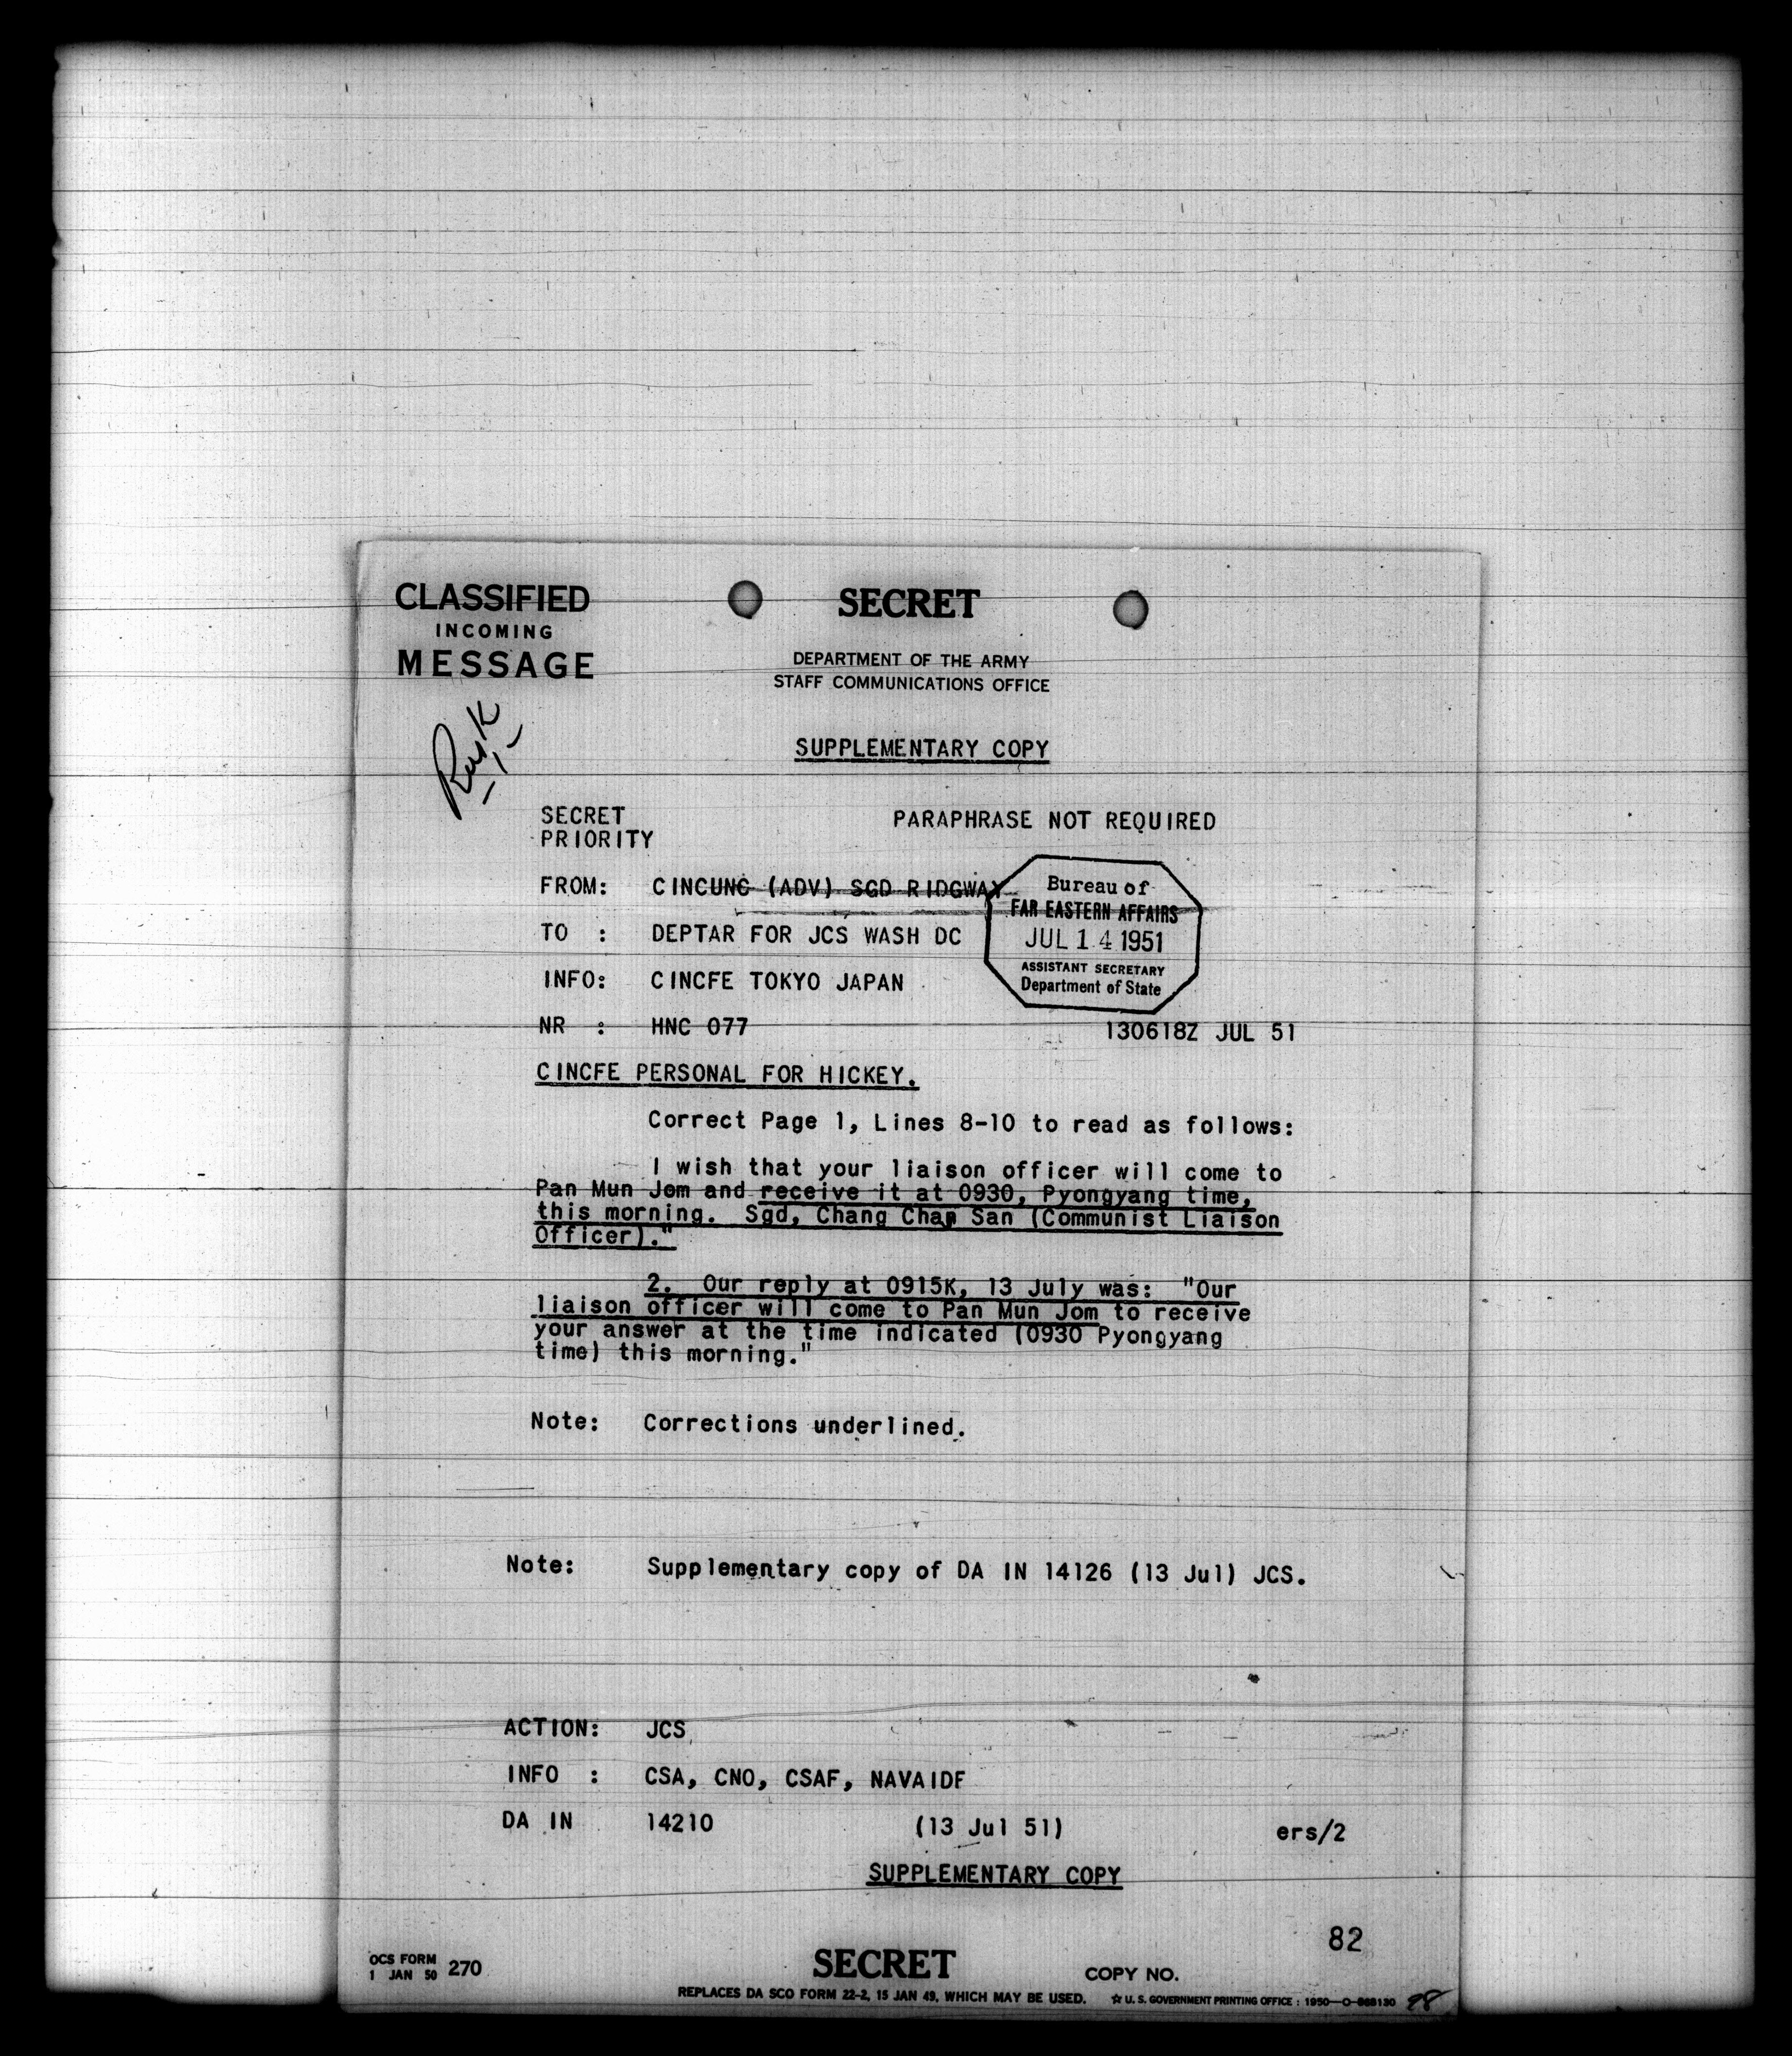 CLASSIFIED
INCOMING
MESSAGE
SECRET
DEPARTMENT OF THE ARMY
STAFF COMMUNICATIONS OFFICE
Rusk
SUPPLEMENTARY COPY
SECRET PARAPHRASE NOT REQUIRED
PRIORITY
FROM: CINCUNC (ADV) SGD RIDGWAY
TO : DEPTAR FOR JCS WASH DC
INFO: CINCFE TOKYO JAPAN
Bureau of
FAR EASTERN AFFAIRS
JUL 14 1951
ASSISTANT SECRETARY
Department of State
NR : HNC 077 130618Z JUL 51
CINCFE PERSONAL FOR HICKEY.
Correct Page 1, Lines 8-10 to read as follows:
I wish that your liaison officer will come to
Pan Mun Jom and receive it at 0930, Pyongyang time,
this morning. Sgd, Chang Chan San (Communist Liaison
Officer)."
2. Our reply at 0915K, 13 July was: "Our
liaison officer will come to Pan Mun Jom to receive
your answer at the time indicated (0930 Pyongyang
time) this morning."
Note: Corrections underlined.
Note: Supplementary copy of DA IN 14126 (13 Jul) JCS.
ACTION: JCS
INFO : CSA, CNO, CSAF, NAVAIDF
DA IN 14210 (13 Jul 51) ers/2
SUPPLEMENTARY COPY
82
OCS FORM
1 JAN 50 270
SECRET
COPY NO.
REPLACES DA SCO FORM 22-2, 15 JAN 49, WHICH MAY BE USED. ☆ U. S. GOVERNMENT PRINTING OFFICE : 1950—O-
98